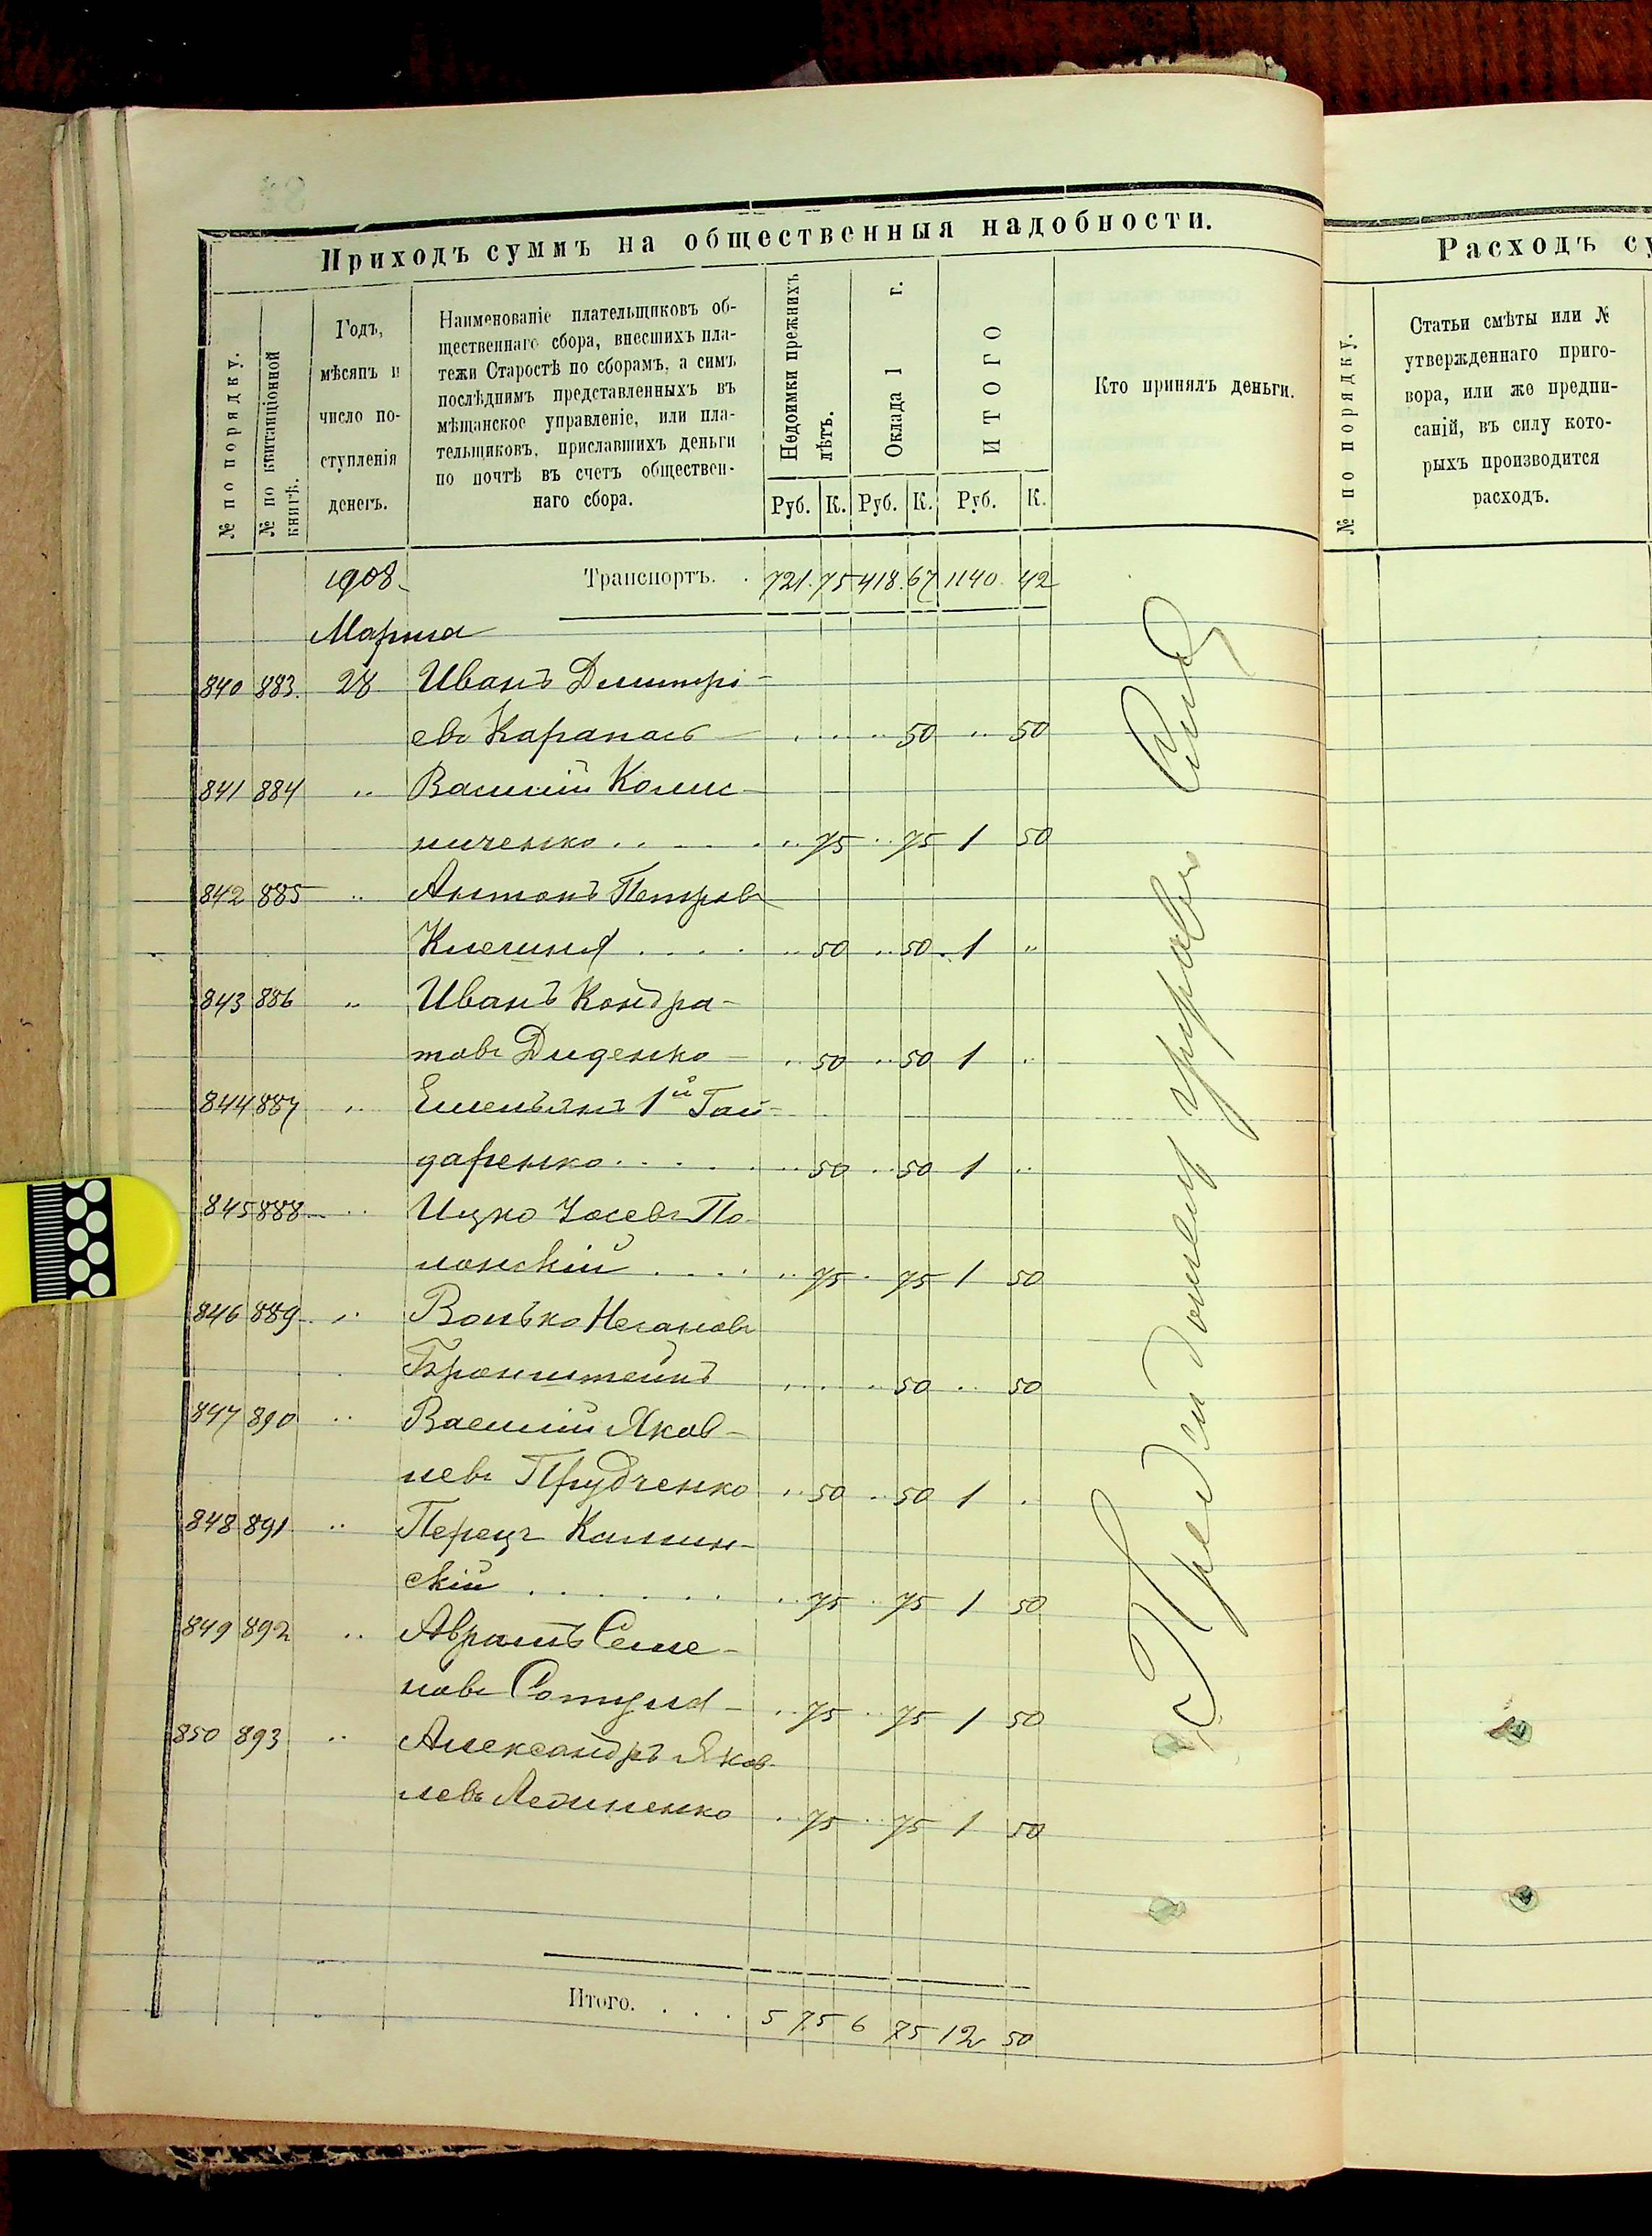 Приходъ суммъ на общественныя надобности.
№ по порядку.
№ по квитанціонной книгѣ.
Годъ,
мѣсяцъ и
число по-
ступленія
денегъ.
Наименованіе плательщиковъ об-
щественнаго сбора, внесшихъ пла-
тежи Старостѣ по сборамъ, а симъ
послѣднимъ представленныхъ въ
мѣщанское управленіе, или пла-
тельщиковъ, приславшихъ деньги
по почтѣ въ счетъ обществен-
наго сбора.
Недоимки прежнихъ лѣтъ.
Оклада 1 г.
ИТОГО
Кто принялъ деньги.
Руб. К. Руб. К. Руб. К.
1908 Транспортъ. . 721. 75 418. 67 1140. 42
Марта
840 883. 28 Иванъ Димитрі-
евъ 50 50
841 884 Василій
ниченко 75 75 1 50
842 885 Антонъ Петровъ
50 50 1
843 886 Иванъ Кондра-
товъ Диденко 50 50 1
844 887 Емельянъ 1й Гай-
даренко 50 50 1
845 888 Ицко Іосевъ По-
лонскій 75 75 1 50
846 889 Волько
Бронштейнъ 50 50
847 890 Василій Яков-
левъ Прудченко 50 50 1
848 891 Перецъ
скій 75 75 1 50
849 892 Аврамъ Семе-
новъ 75 75 1 50
850 893 Александръ Яков-
левъ 75 75 1 50
Итого. . . . 5 75 6 75 12 50
Расходъ су
№ по порядку.
Статьи смѣты или №
утвержденнаго приго-
вора, или же предпи-
саній, въ силу кото-
рыхъ производится
расходъ.